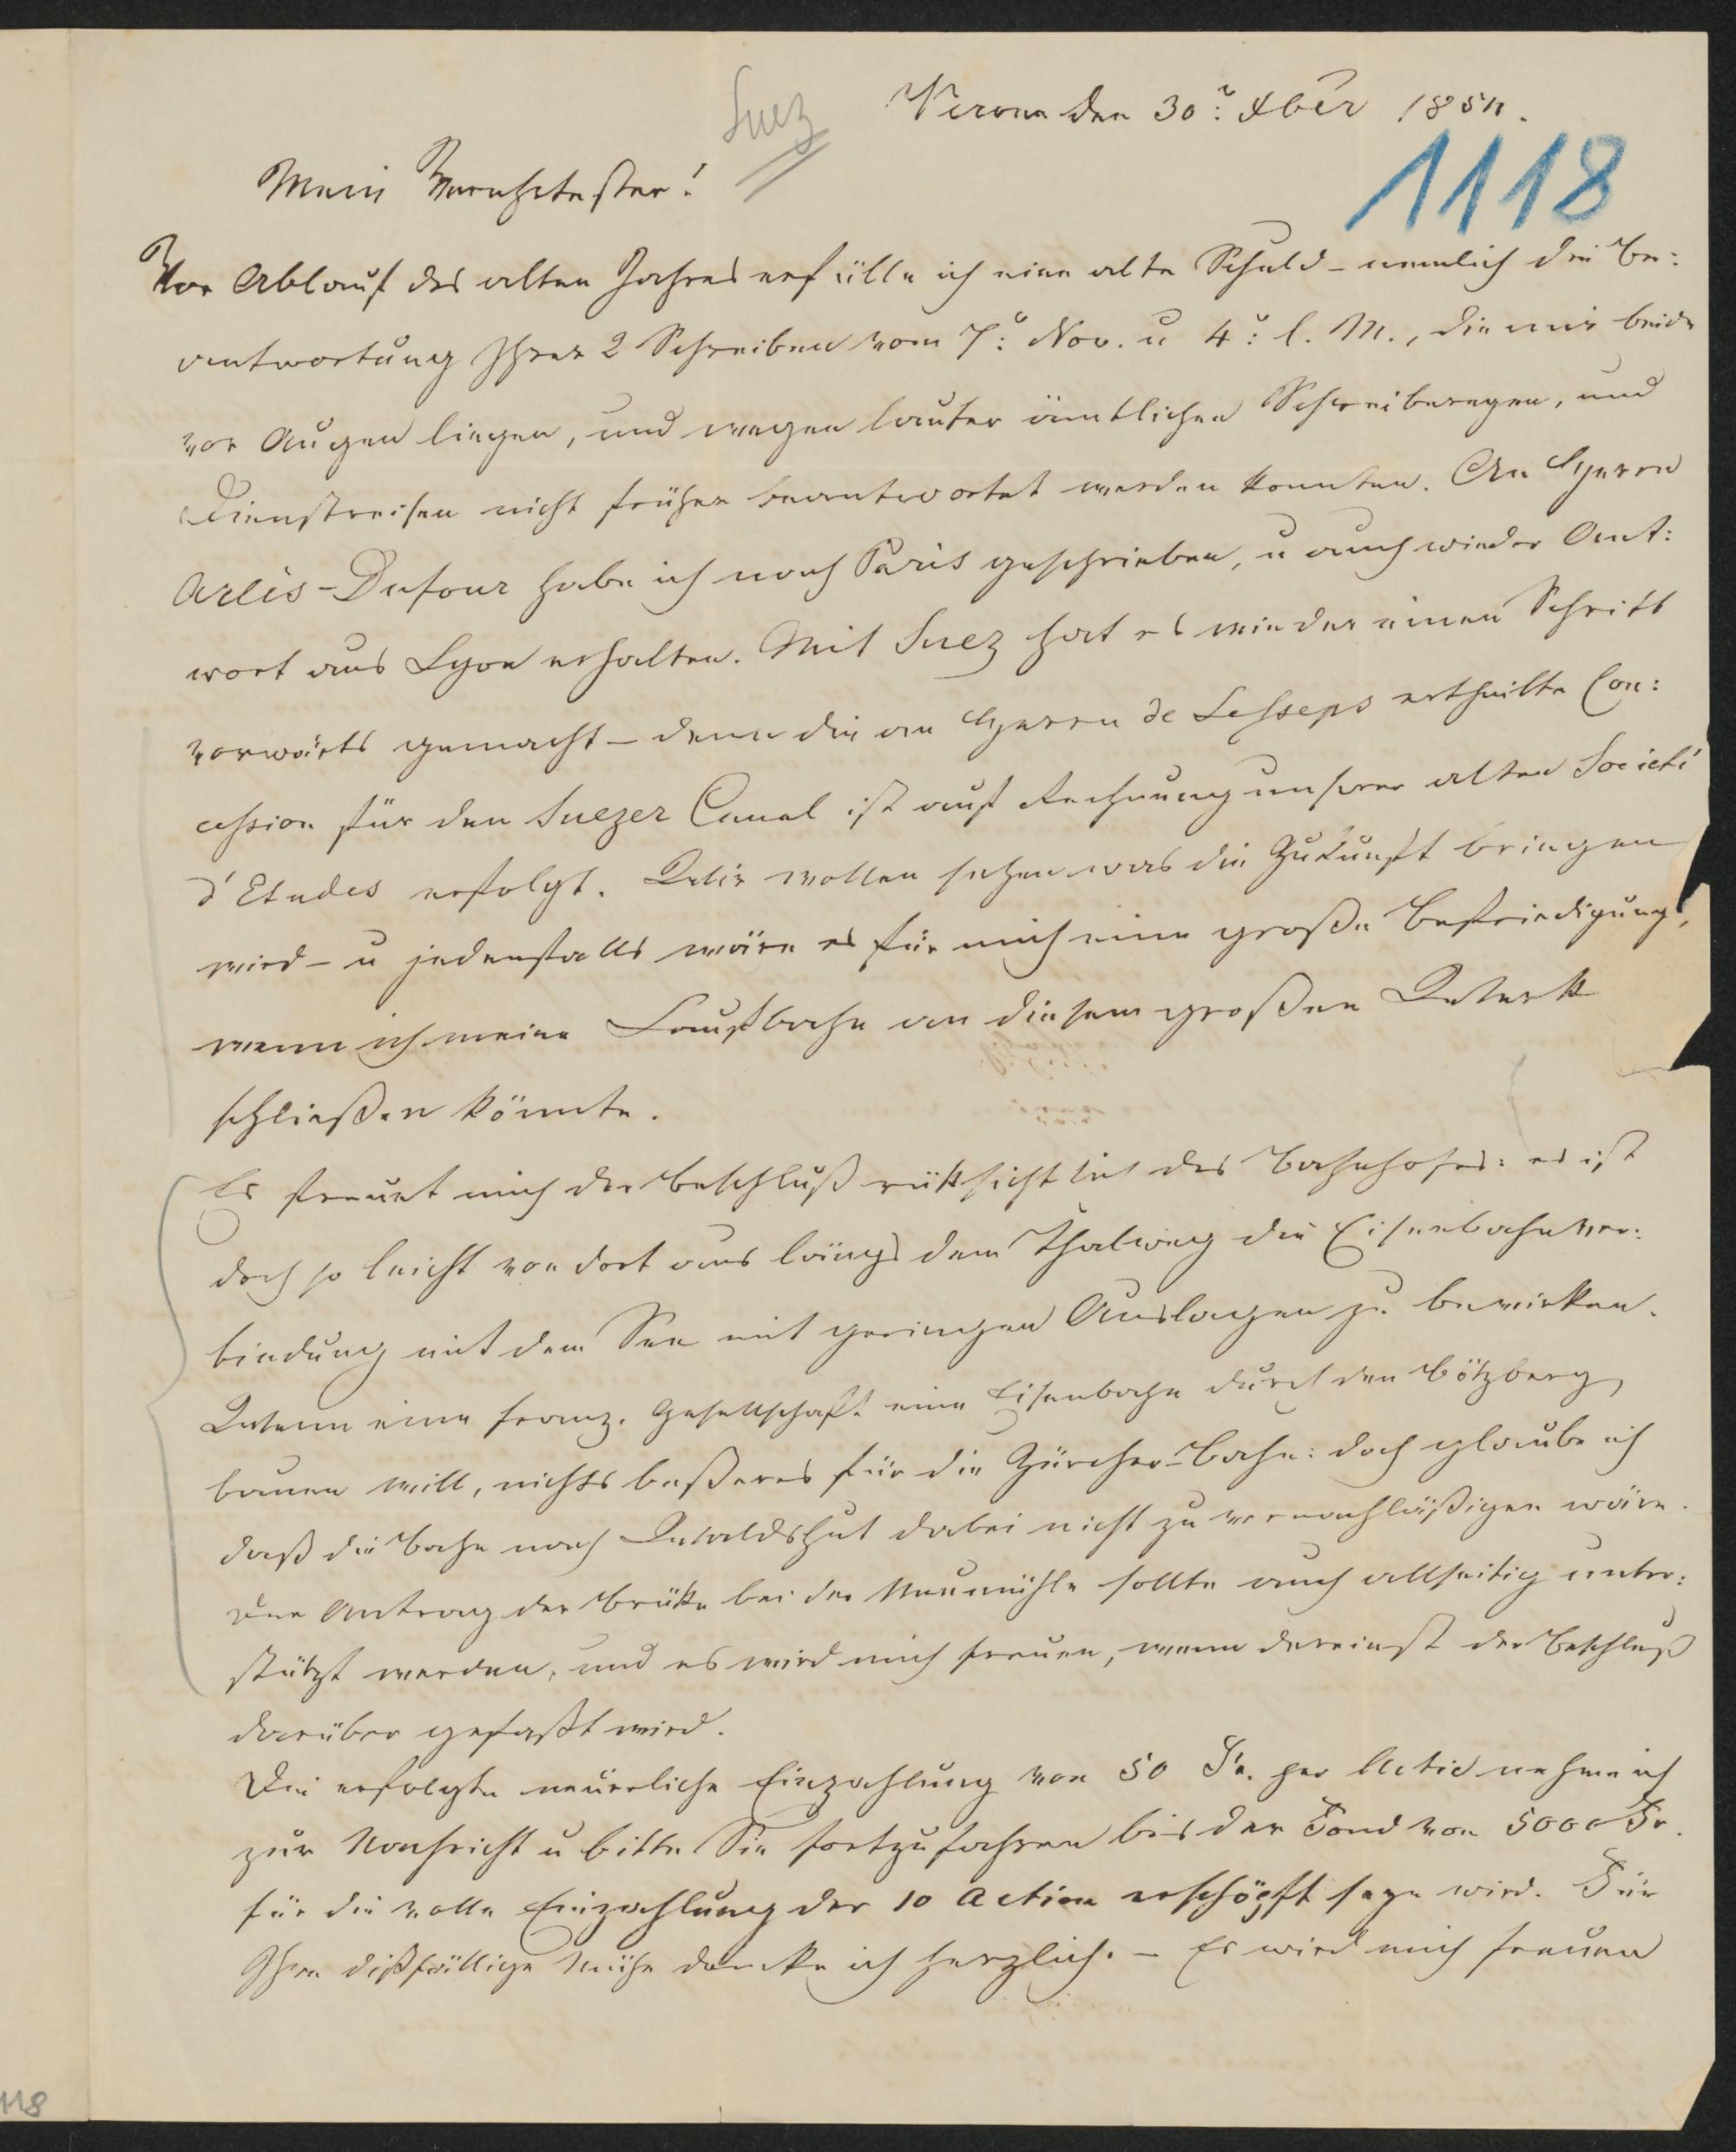 Suez
Verona den 30: Xber 1854.
1118
Mein Verehrtester!
Vor Ablauf des alten Jahres erfülle ich eine alte Schuld – nemlich die Be:
antwortung Ihrer 2 Schreiben vom 7: Nov. u 4: l. M., die mir beide
vor Augen liegen, und wegen lauter ämtlichen Schreibereyen, und
Dienstreisen nicht früher beantwortet werden konnten. An Herrn
Arlès-Dufour habe ich nach Paris geschrieben, u auch wieder Ant:
wort aus Lyon erhalten. Mit Suez hat es wieder einen Schritt
vorwärts gemacht – denn die an Herrn de Lesseps ertheilte Con:
cession für den Suezer Canal ist auf Rechnung unserer alten Societé
d'Etudes erfolgt. Wir wollen sehen was die Zukunft bringen
wird – u jedenfalls wäre es für mich eine große Befriedigung,
wenn ich meine Laufbahn an diesem großen Werk
schließen könnte.
Es freuet mich der Beschluß rüksichtlich des Bahnhofes: es ist
doch so leicht von dort aus längs dem Thalweg die Eisenbahnver:
bindung mit dem See mit geringen Auslagen zu bewirken.
Wenn eine franz. Gesellschaft eine Eisenbahn durch den Bötzberg
bauen will, nichts beßeres für die Zürcher-Bahn: doch glaube ich
daß die Bahn nach Waldshut dabei nicht zu vernachläßigen wäre.
Der Antrag der Brükke bei der Neumühle sollte auch allseitig unter:
stützt werden, und es wird mich freuen, wenn dereinst der Beschluß
darüber gefaßt wird.
Die erfolgte neuerliche Einzahlung von 50 Fr. per Actie nehme ich
zur Nachricht u bitte Sie fortzufahren bis der Fond von 5000 Fr.
für die volle Einzahlung der 10 Actien erschöpft seyn wird. Für
Ihre dißfällige Mühe danke ich herzlich. – Es wird mich freuen
118